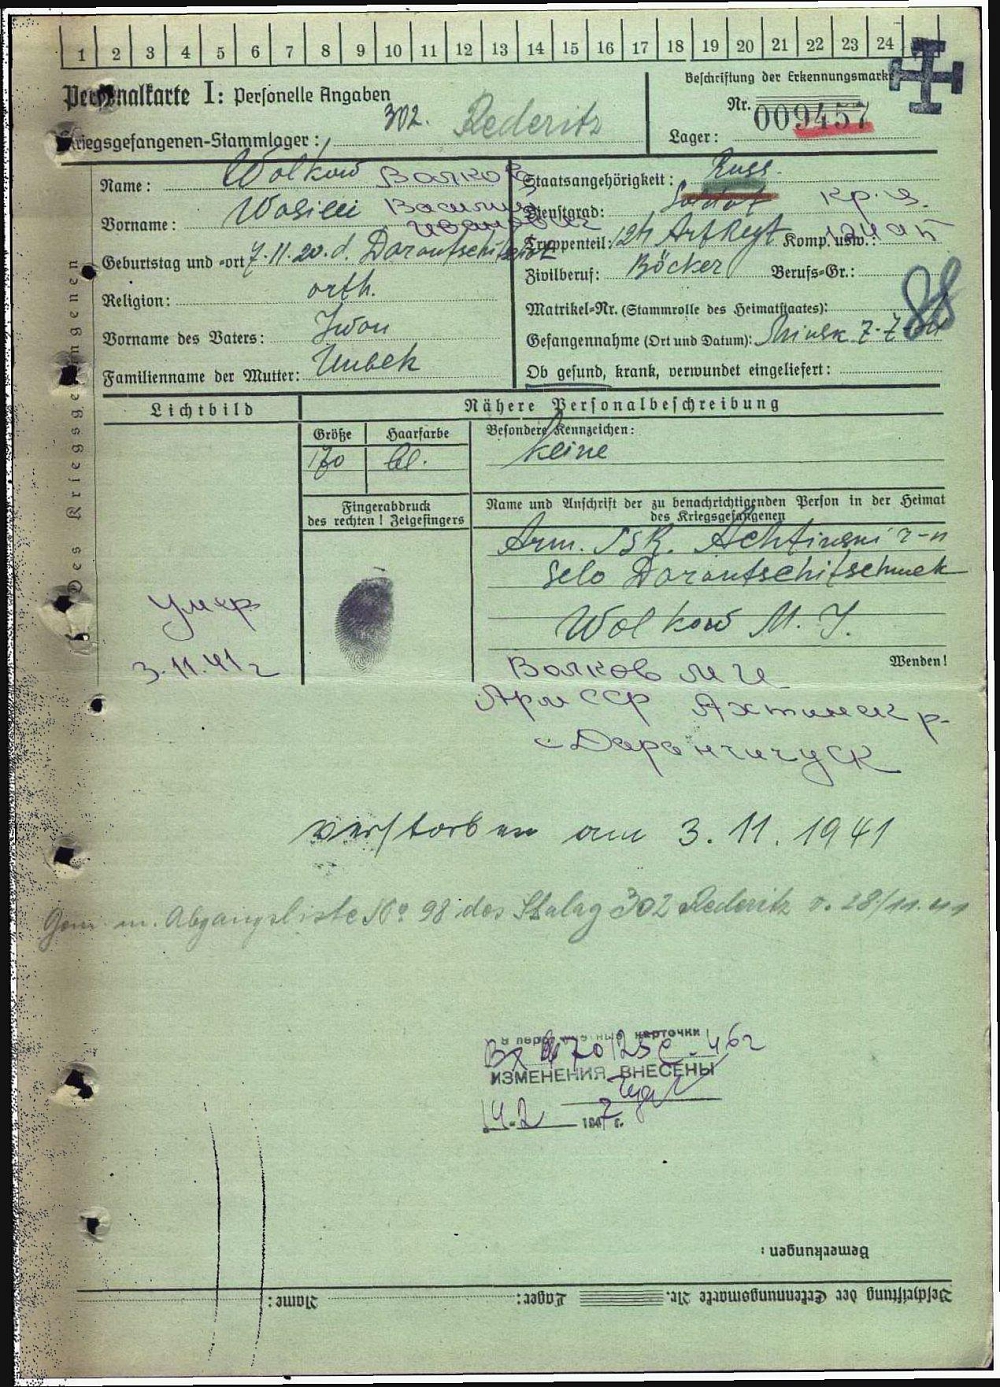 1 2 3 4 5 6 7 8 9 10 11 12 13 14 15 16 17 18 19 20 21 22 23 24
Personalkarte I: Personelle Angaben
Kriegsgefangenen-Stammlager: 302. Rederitz
Beschriftung der Erkennungsmarke
Nr. 009457
Lager:
Des Kriegsgefangenen
Name: Wolkow Волков
Vorname: Wasilei Василий
Иванович
Geburtstag und -ort: 7.11.20. d. Darantschitschek
Religion: orth.
Vorname des Vaters: Iwan
Familienname der Mutter:
Staatsangehörigkeit: Russ.
Dienstgrad: Soldat кр.
Truppenteil: 124 Art Regt Komp. usw.: 124 ап
Zivilberuf: Bäcker Berufs-Gr.:
Matrikel-Nr. (Stammrolle des Heimatstaates):
Gefangennahme (Ort und Datum): Minsk 7.7.41
88
Ob gesund, krank, verwundet eingeliefert:
Lichtbild
Nähere Personalbeschreibung
Größe Haarfarbe
170 bl.
Besondere Kennzeichen:
keine
Fingerabdruck
des rechten! Zeigefingers
Name und Anschrift der zu benachrichtigenden Person in der Heimat
des Kriegsgefangenen
Arm. SSR. Achtinski r-n
Selo Darantschitschek
Wolkow M. I.
Wenden!
умер
3.11.41 г
Волков М И
Арм ССР Ахтинск р-
с Даранчичуск
verstorben am 3.11.1941
Gem. Abgangsliste No 98 des Stalag 302 Rederitz v. 28/11.41
карточки
46г
ИЗМЕНЕНИЯ ВНЕСЕНЫ
14.2 1947 г.
Bemerkungen:
Beschriftung der Erkennungsmarke Nr. Lager: Name: